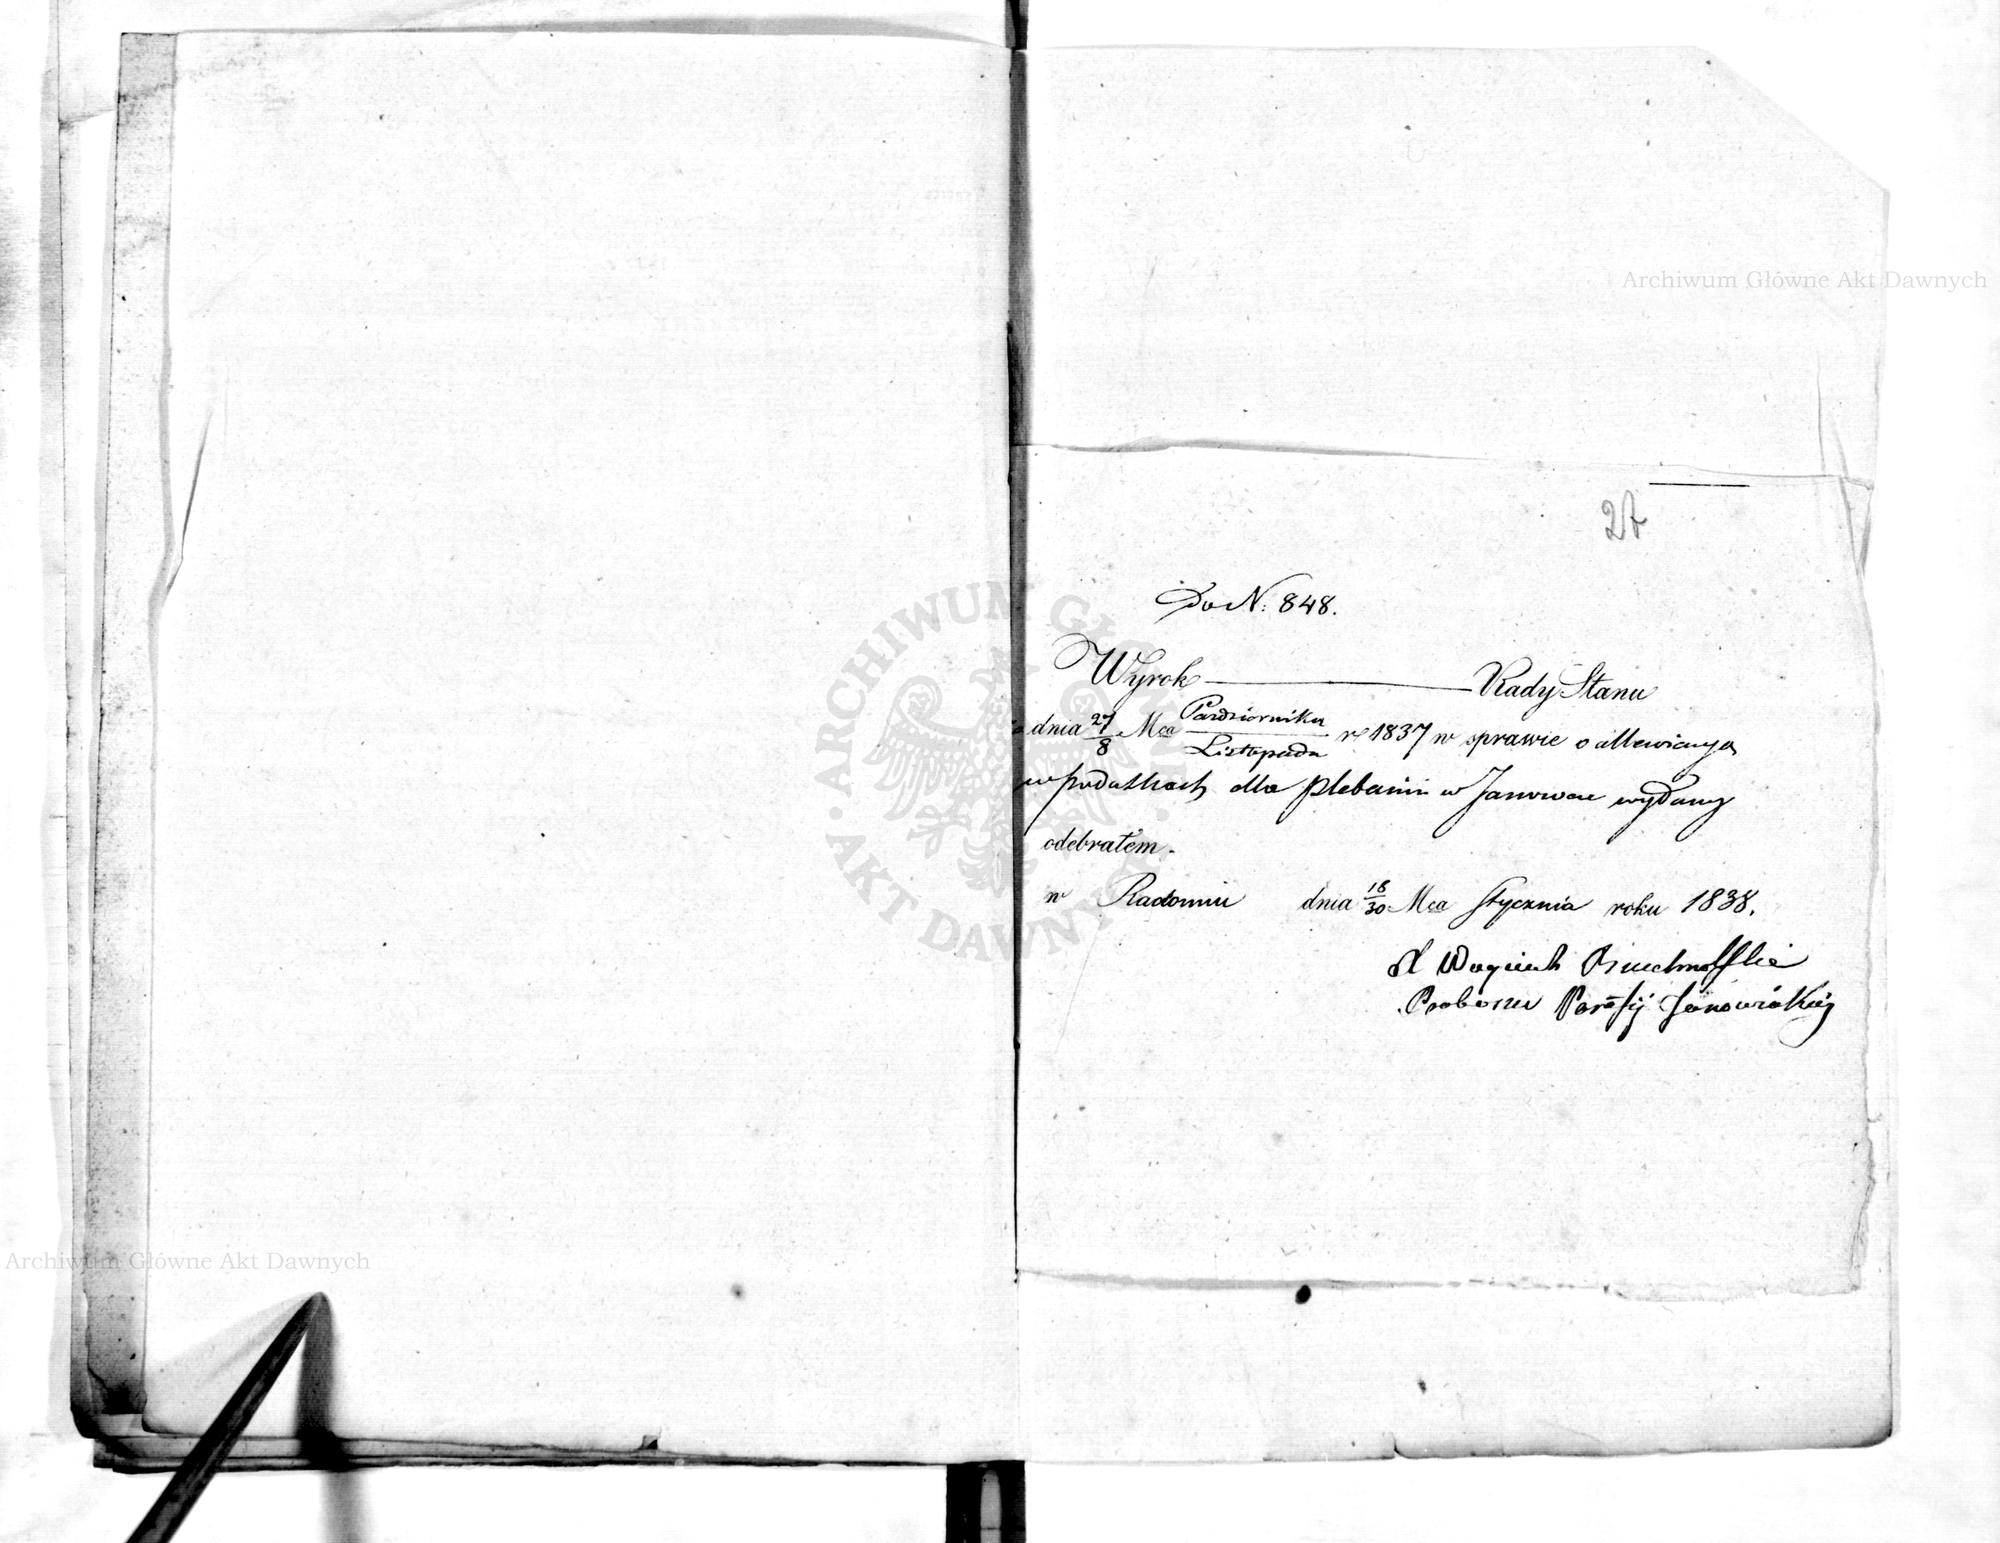 Archiwum Główne Akt Dawnych
27
Do N: 848.
Wyrok — Rady Stanu
dnia 27/8 Mca Pazdziernika/Listopada r 1837 w sprawie o
w podatkach dla plebanii w Janowcu wydany
odebrałem.
w Radomiu dnia 18/30 Mca Stycznia roku 1838.
X Woyciech
Proboszcz Parafij Janowieckiéj
ARCHIWUM GŁÓWNE AKT DAWNYCH
Archiwum Główne Akt Dawnych